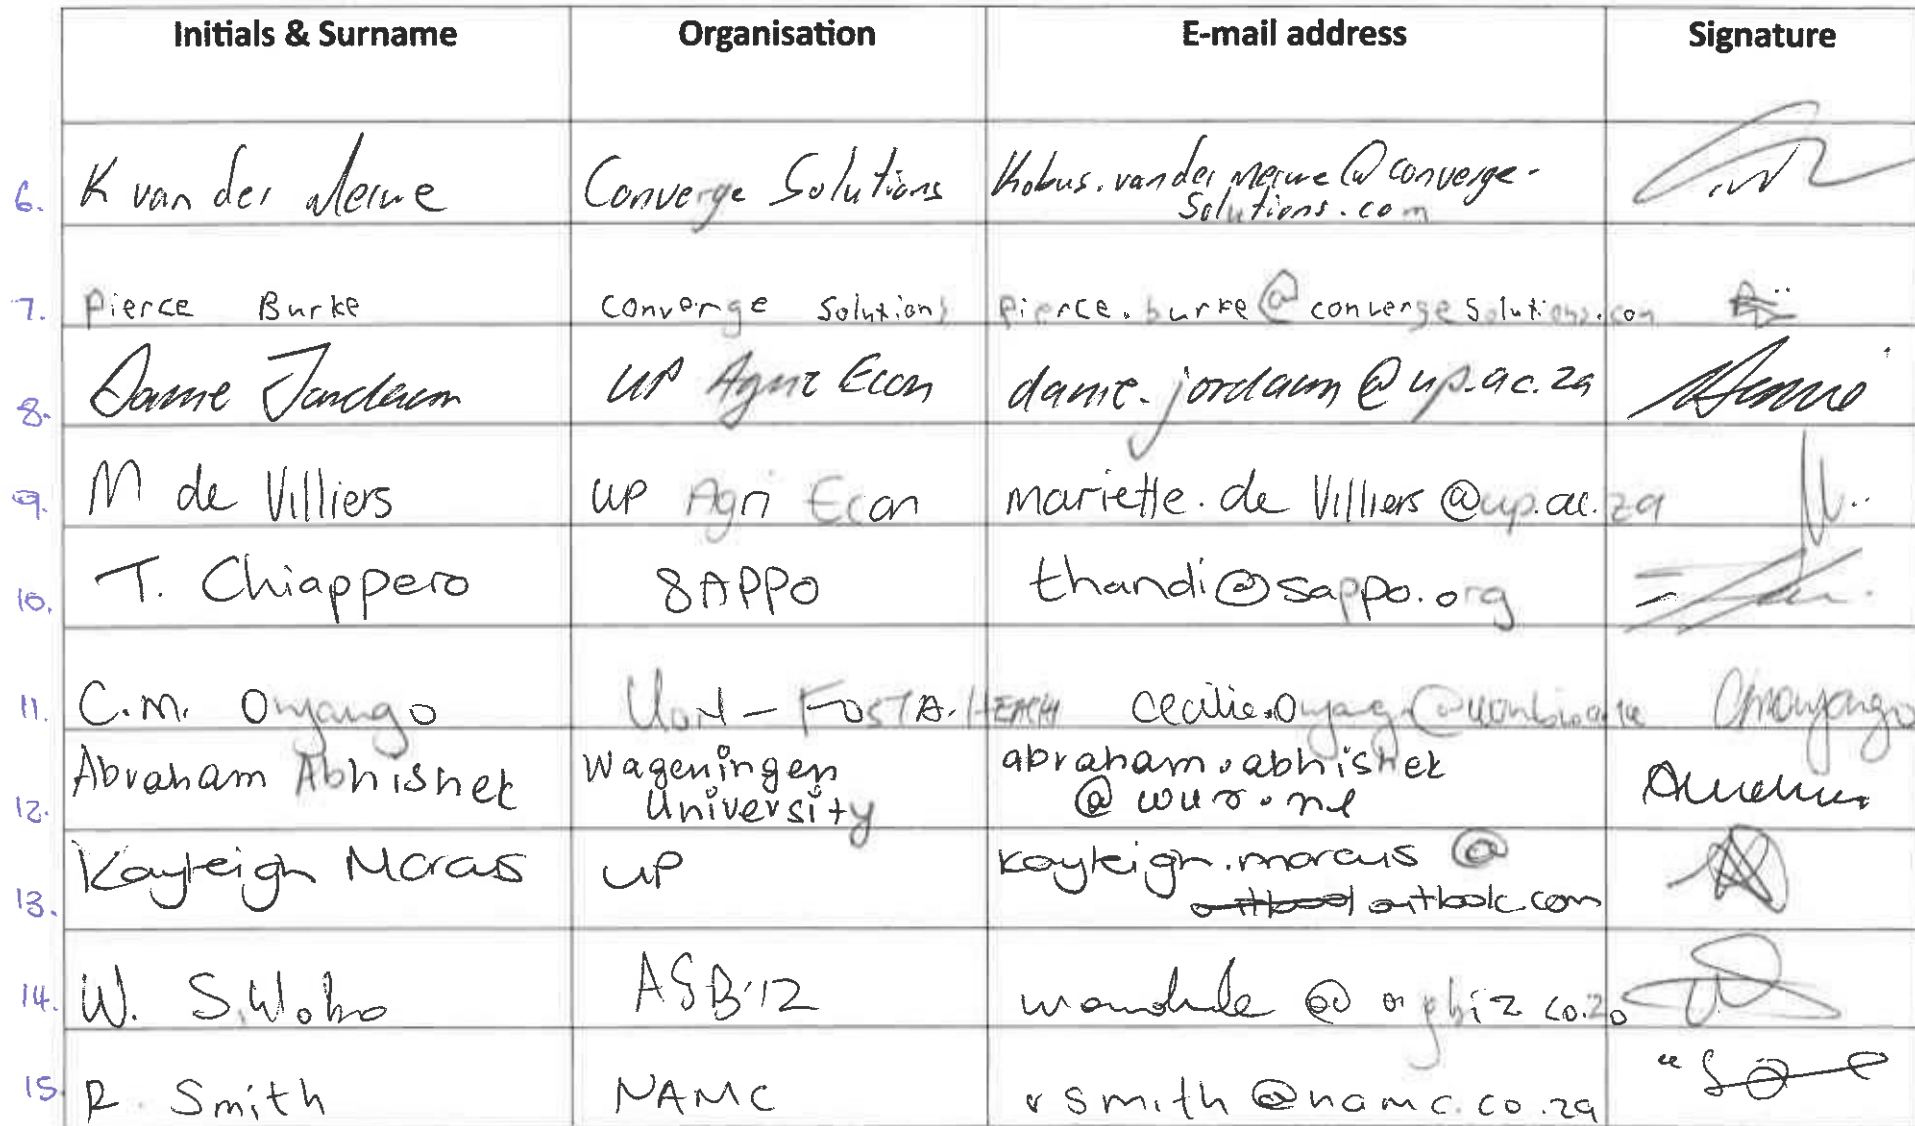 Initials & Surname Organisation E-mail address Signature
6. K van der Merwe Converge Solutions Kobus.vandermerwe@converge-
Solutions.com
7. Pierce Burke Converge Solutions Pierce.burke@convergesolutions.com
8. Danie Jordaan UP Agric Econ danie.jordaan@up.ac.za
9. M de Villiers UP Agri Econ mariette.deVilliers@up.ac.za
10. T. Chiappero SAPPO thandi@sappo.org
11. C.M. Onyango UoN - FOSTA-HEALTH
12. Abraham Abhishek Wageningen abraham.abhishek
University @wur.nl
13. Kayleigh Marais UP kayleigh.marais@
outlook.com
14. W.
15. R. Smith NAMC rsmith@namc.co.za